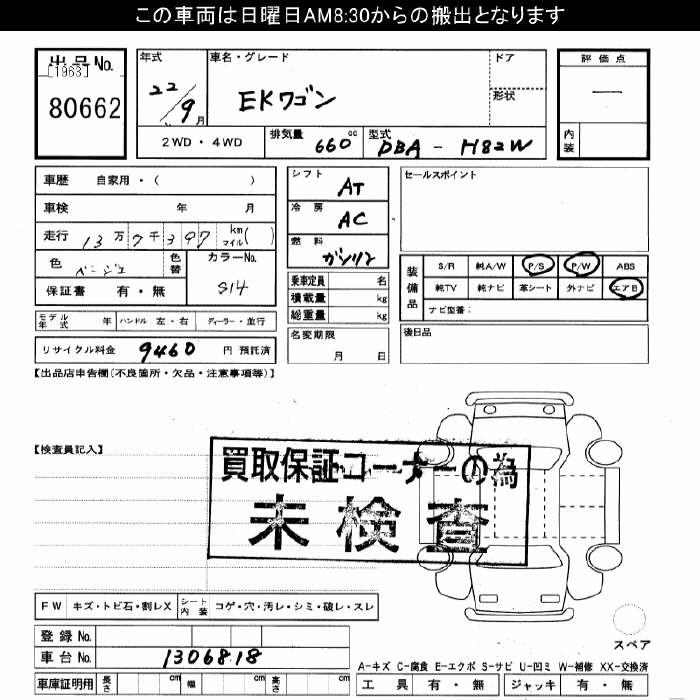 この車両は日曜日AM8:30からの搬出となります
出品No.
[1963]
80662
年式
22/9月
車名・グレード
EKワゴン
ドア
形状
評価点
—
内装
2WD・4WD
排気量
660cc
型式
DBA-H82W
車歴 自家用・( )
車検 年 月
走行 13万7千397 km マイル( )
色 ベージュ 色替
カラーNo.
S14
保証書 有・無
シフト
AT
冷房
AC
燃料
ガソリン
乗車定員 名
積載量 kg
総重量 kg
セールスポイント
装備品
S/R 純A/W P/S P/W ABS
純TV 純ナビ 革シート 外ナビ エアB
ナビ型番:
モデル年式 年 ハンドル 左・右 ディーラー・並行
リサイクル料金 9460 円 預託済
名変期限
月 日
後日品
【出品店申告欄(不良箇所・欠品・注意事項等)】
【検査員記入】
買取保証コーナーの為
未検査
FW キズ・トビ石・割レX
シート内装 コゲ・穴・汚レ・シミ・破レ・スレ
スペア
登録No.
車台No. 1306818
車庫証明用 長さ cm 幅 cm 高さ cm
A-キズ C-腐食 E-エクボ S-サビ U-凹ミ W-補修 XX-交換済
工具 有・無 ジャッキ 有・無